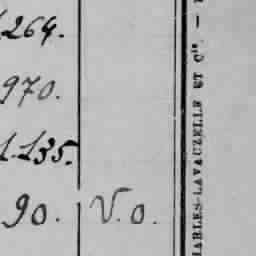 264.
970.
1.135.
90. V.o.
HARLES-LAVAUZELLE ET Cie. —